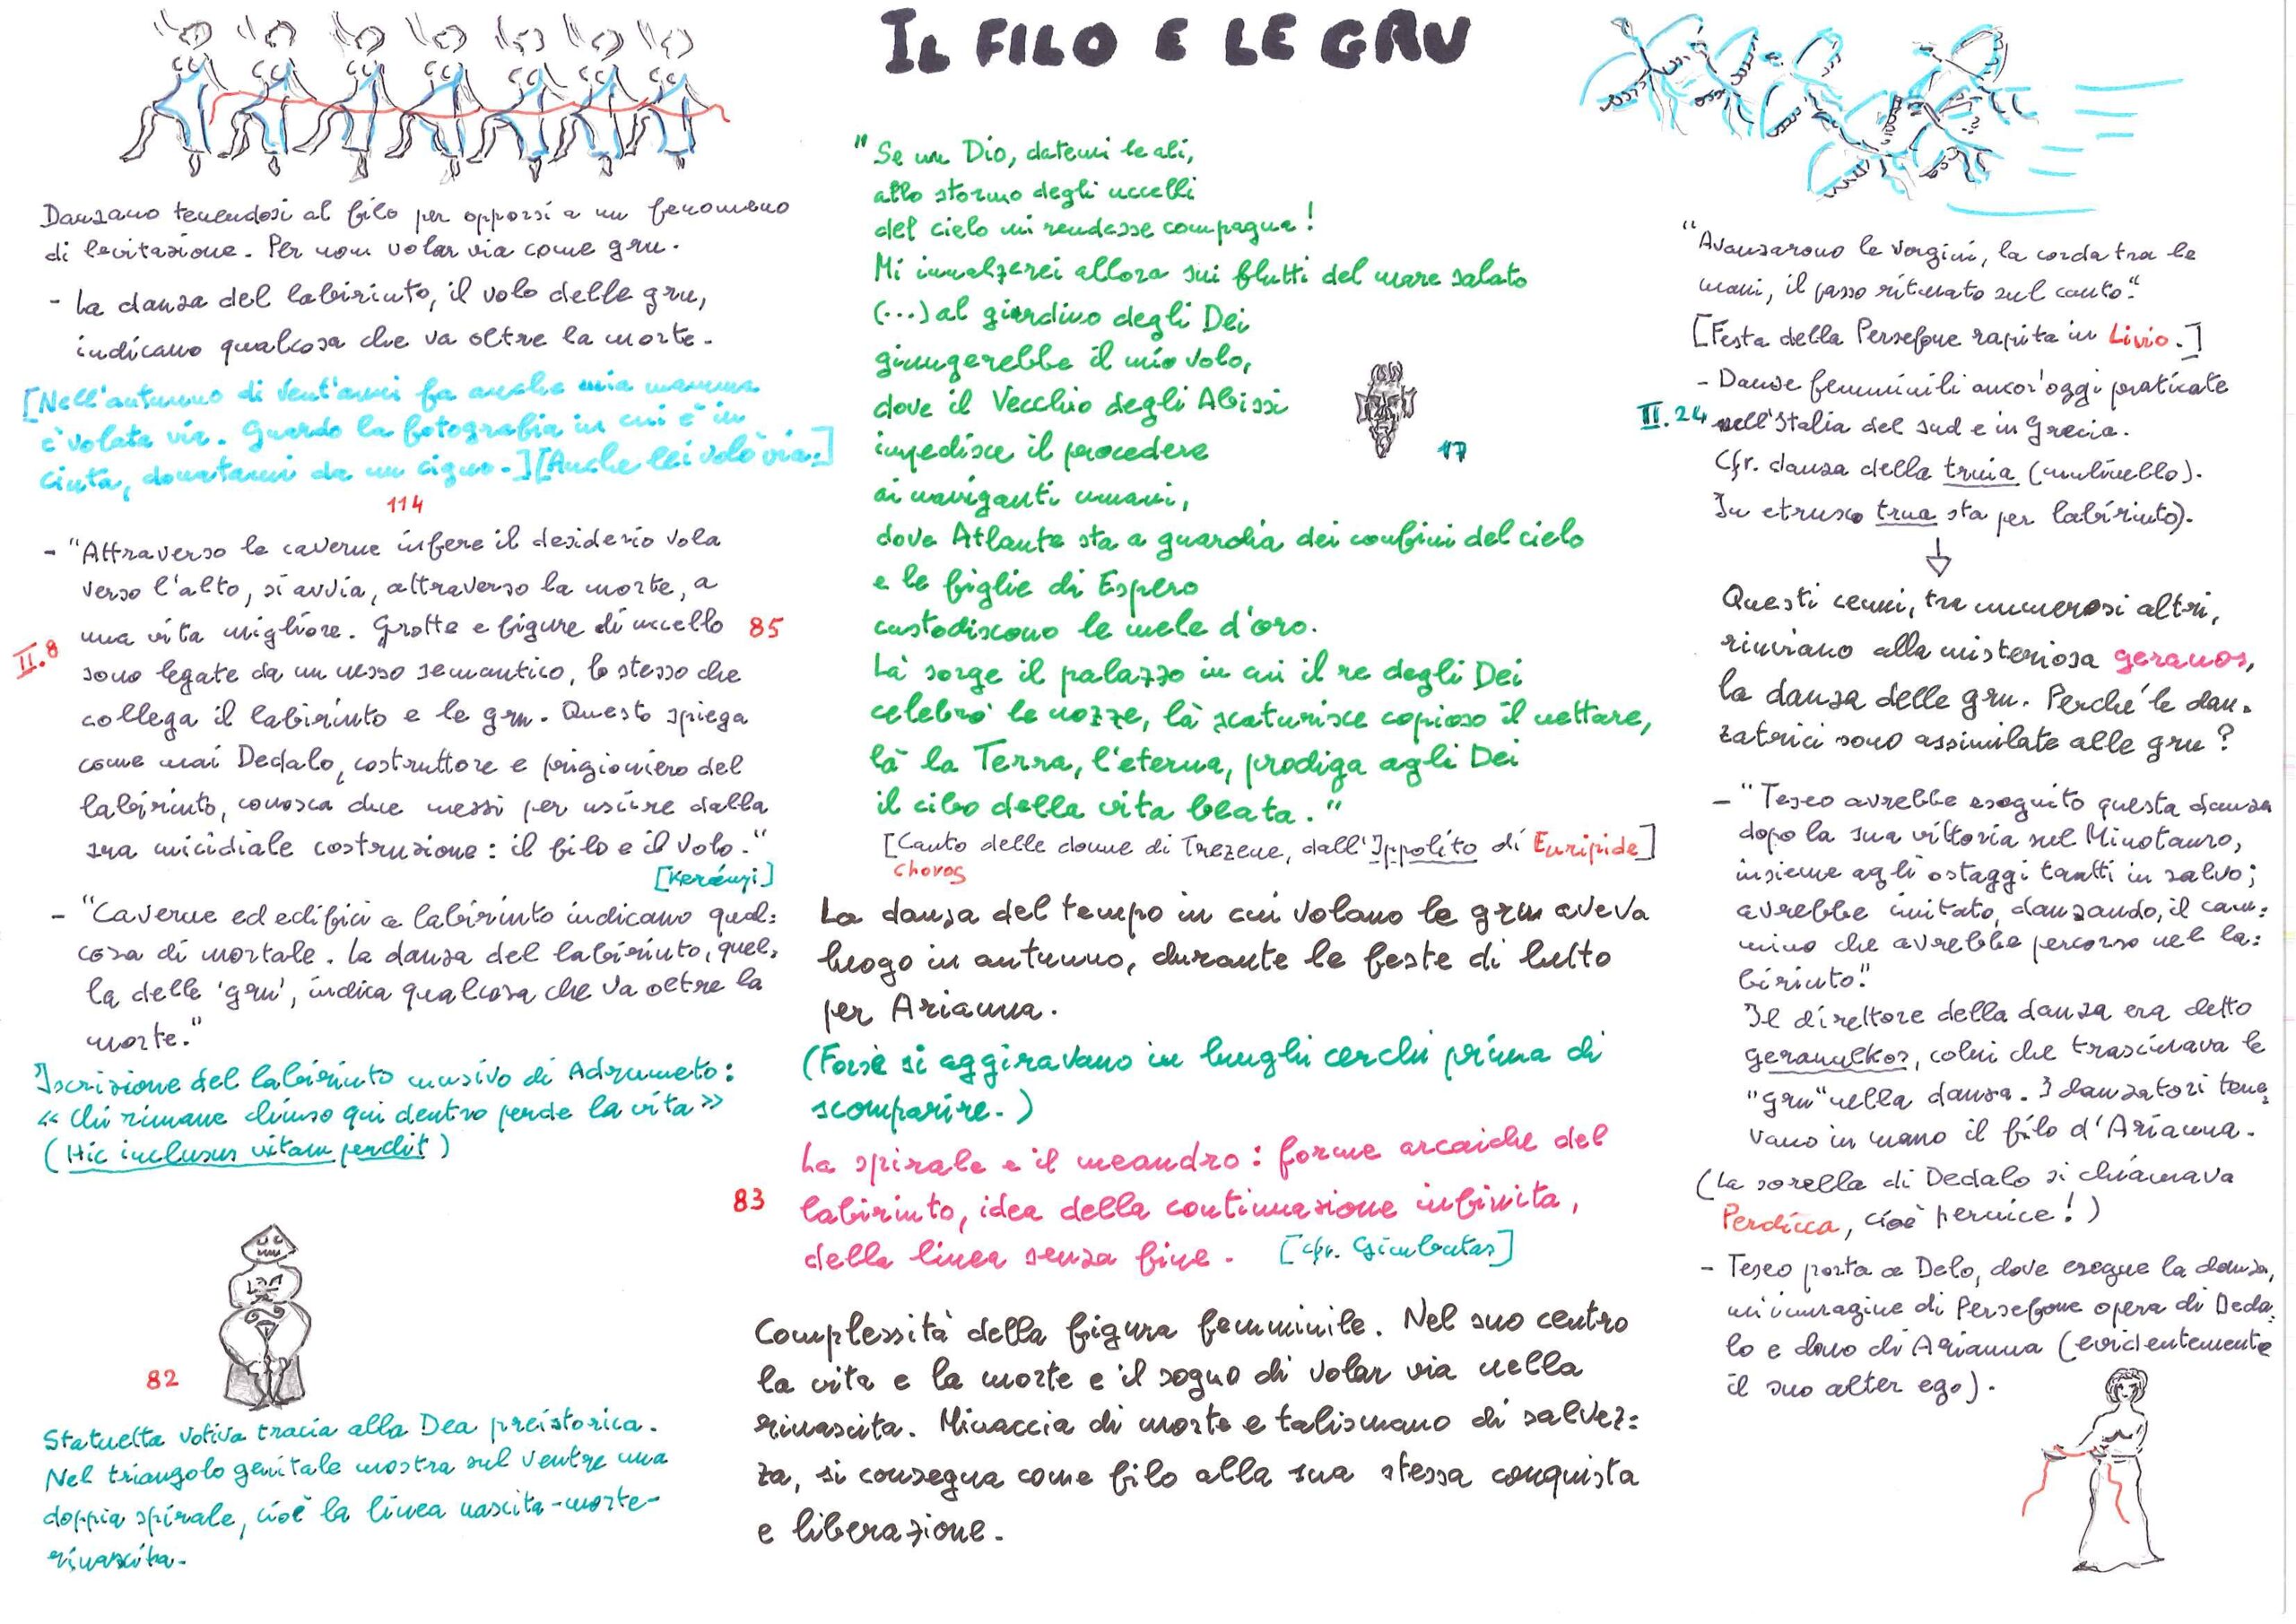 IL FILO E LE GRU
Danzano tenendosi al filo per opporsi a un fenomeno
di levitazione. Per non volar via come gru.
- La danza del labirinto, il volo delle gru,
indicano qualcosa che va oltre la morte.
[Nell'autunno di vent'anni fa anche mia mamma
è volata via. Guardo la fotografia in cui è in
cinta, donatami da un cigno.] [Anche lei volò via.]
114
- "Attraverso le caverne infere il desiderio vola
verso l'alto, si avvia, attraverso la morte, a
una vita migliore. Grotte e figure di uccello 85
II.8
sono legate da un nesso semantico, lo stesso che
collega il labirinto e le gru. Questo spiega
come mai Dedalo, costruttore e prigioniero del
labirinto, conosca due mezzi per uscire dalla
sua micidiale costruzione: il filo e il volo."
[Kerényi]
- "Caverne ed edifici a labirinto indicano qual=
cosa di mortale. La danza del labirinto, quel=
la delle 'gru', indica qualcosa che va oltre la
morte."
Iscrizione del labirinto musivo di Adrumeto:
«Chi rimane chiuso qui dentro perde la vita»
(Hic inclusus vitam perdit)
82
Statuetta votiva tracia alla Dea preistorica.
Nel triangolo genitale mostra sul ventre una
doppia spirale, cioè la linea nascita-morte-
rinascita.
"Se un Dio, datemi le ali,
allo stormo degli uccelli
del cielo mi rendesse compagna!
Mi innalzerei allora sui flutti del mare salato
(...) al giardino degli Dei
giungerebbe il mio volo,
dove il Vecchio degli Abissi
impedisce il procedere
17
ai naviganti umani,
dove Atlante sta a guardia dei confini del cielo
e le figlie di Espero
custodiscono le mele d'oro.
Là sorge il palazzo in cui il re degli Dei
celebrò le nozze, là scaturisce copioso il nettare,
là la Terra, l'eterna, prodiga agli Dei
il cibo della vita beata."
[Canto delle donne di Trezene, dall'Ippolito di Euripide]
Choros
La danza del tempo in cui volano le gru aveva
luogo in autunno, durante le feste di lutto
per Arianna.
(Forse si aggiravano in lunghi cerchi prima di
scomparire.)
La spirale e il meandro: forme arcaiche del
83 labirinto, idea della continuazione infinita,
della linea senza fine. [cfr. Gimbutas]
Complessità della figura femminile. Nel suo centro
la vita e la morte e il sogno di volar via nella
rinascita. Minaccia di morte e talismano di salvez=
za, si consegna come filo alla sua stessa conquista
e liberazione.
"Avanzarono le vergini, la corda tra le
mani, il passo ritmato sul canto."
[Festa della Persefone rapita in Livio.]
- Danze femminili ancor'oggi praticate
II.24 nell'Italia del sud e in Grecia.
Cfr. danza della truia (mulinello).
In etrusco trua sta per labirinto).
Questi cenni, tra numerosi altri,
rinviano alla misteriosa geranos,
la danza delle gru. Perché le dan=
zatrici sono assimilate alle gru?
- "Teseo avrebbe eseguito questa danza
dopo la sua vittoria sul Minotauro,
insieme agli ostaggi tratti in salvo;
avrebbe imitato, danzando, il cam=
mino che avrebbe percorso nel la=
birinto."
Il direttore della danza era detto
geranulkos, colui che trascinava le
"gru" nella danza. I danzatori tene=
vano in mano il filo d'Arianna.
(La sorella di Dedalo si chiamava
Perdicca, cioè pernice!)
- Teseo porta a Delo, dove esegue la danza,
un'immagine di Persefone opera di Deda=
lo e dono di Arianna (evidentemente
il suo alter ego).